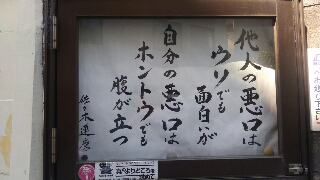 他人の悪口は
ウソでも
面白いが
自分の悪口は
ホントウでも
腹が立つ